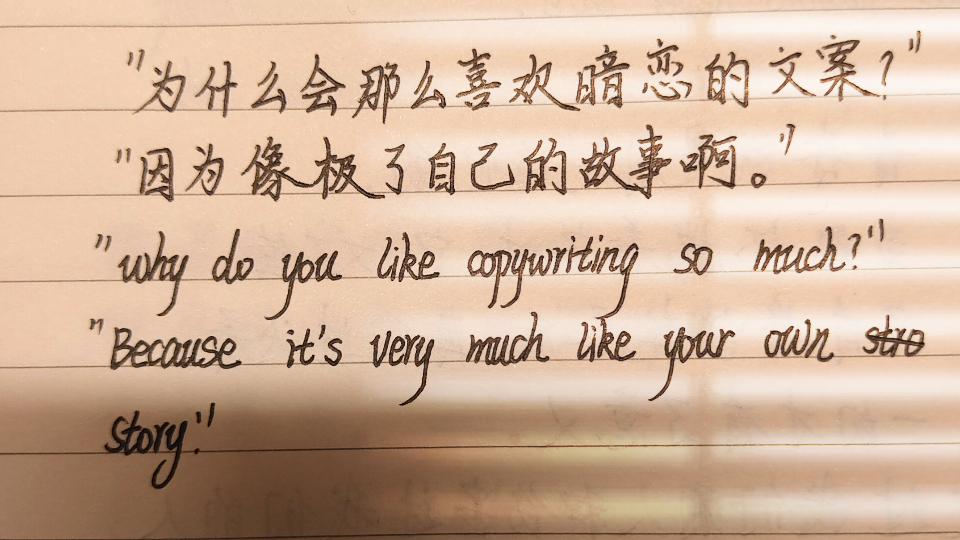 "为什么会那么喜欢暗恋的文案?"
"因为像极了自己的故事啊。"
"why do you like copywriting so much?"
"Because it's very much like your own stro
story."